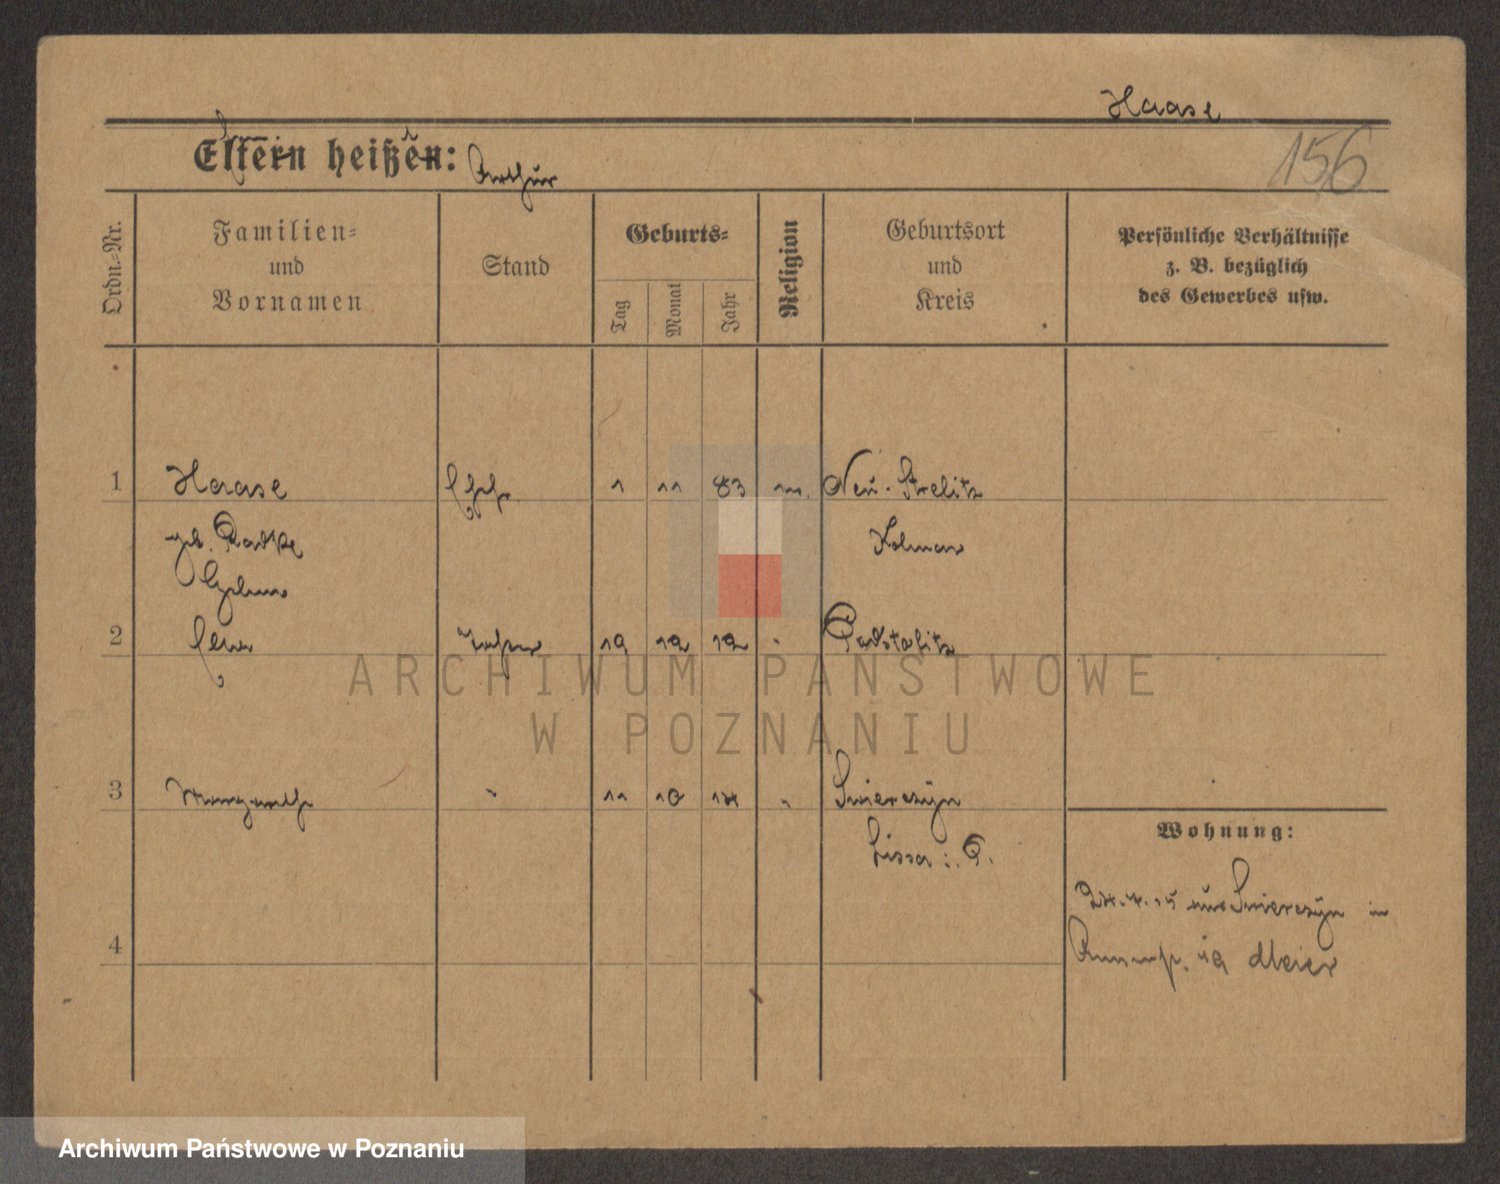 Haase
Eltern heißen: Arthur
156
Ordn.-Nr.
Familien-
und
Vornamen
Stand
Geburts-
Tag
Monat
Jahr
Religion
Geburtsort
und
Kreis
Persönliche Verhältnisse
z. B. bezüglich
des Gewerbes usw.
1 Haase Ehfr. 1 11 83 Neu-Strelitz
geb. Radtke Kolmar
2 19 12 12 "
3 Margarethe " 11 10 14 " Swierczyn
Lissa i. P.
Wohnung:
24.4.15 aus Swierczyn in
19 Meier
4
ARCHIWUM PAŃSTWOWE
W POZNANIU
Archiwum Państwowe w Poznaniu